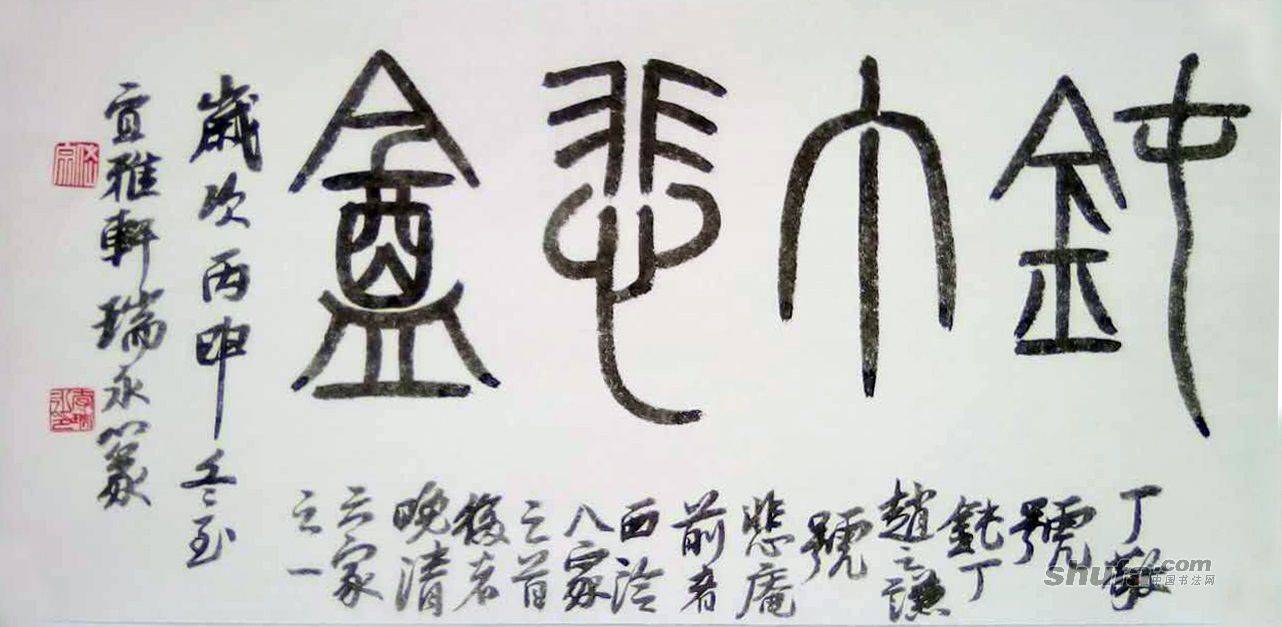 鈍丁悲盦
丁敬
號
鈍丁
趙之謙
號
悲庵
前者
西泠
八家
之首
後者
晚清
六家
之一
歲次丙申冬至
宜雅軒瑞永篆
shufa.com
中国书法网